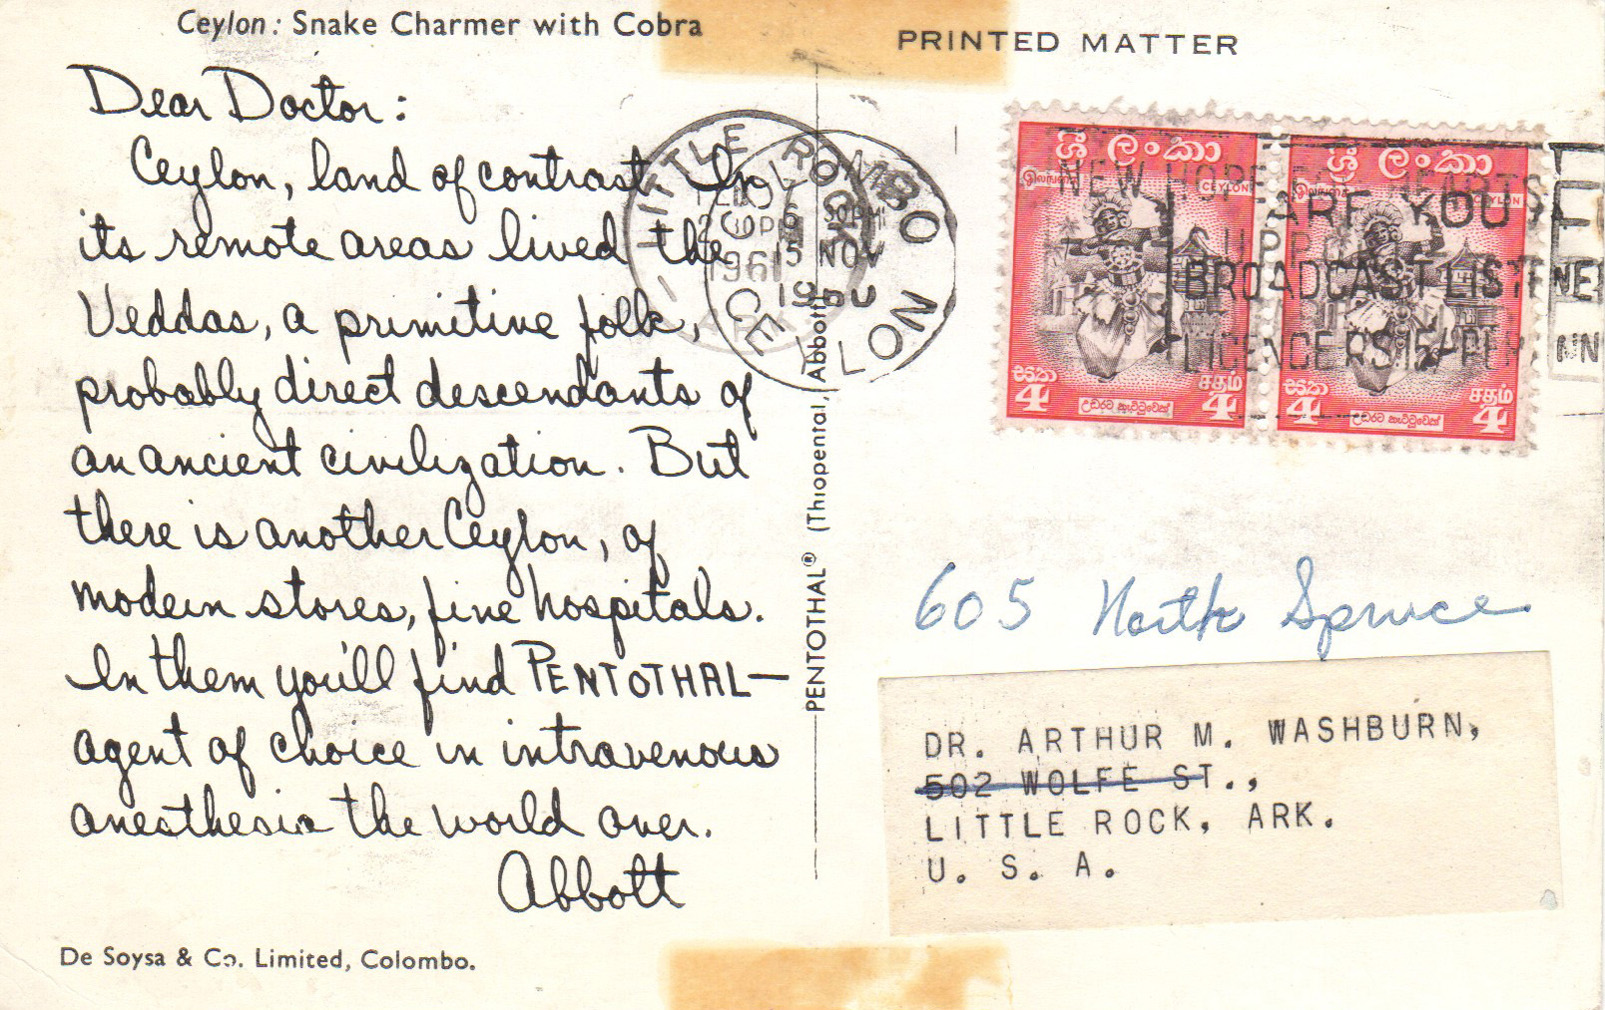 Ceylon: Snake Charmer with Cobra
PRINTED MATTER
Dear Doctor:
Ceylon, land of contrast. In
its remote areas lived the
Veddas, a primitive folk,
probably direct descendants of
an ancient civilization. But
there is another Ceylon, of
modern stores, fine hospitals.
In them you'll find PENTOTHAL—
agent of choice in intravenous
anesthesia the world over.
Abbott
De Soysa & Co. Limited, Colombo.
PENTOTHAL® (Thiopental, Abbott)
LITTLE ROCK
1961
COLOMBO
15 NOV
1960
CEYLON
NEW HOPE HEARTS
ARE YOU A
BROADCAST LISTENER
ශ්‍රී ලංකා
CEYLON
සත
4
சதம்
4
උඩරට නැට්ටුවෙක්
ශ්‍රී ලංකා
CEYLON
සත
4
சதம்
4
උඩරට නැට්ටුවෙක්
605 North Spruce
DR. ARTHUR M. WASHBURN,
502 WOLFE ST.,
LITTLE ROCK, ARK.
U. S. A.